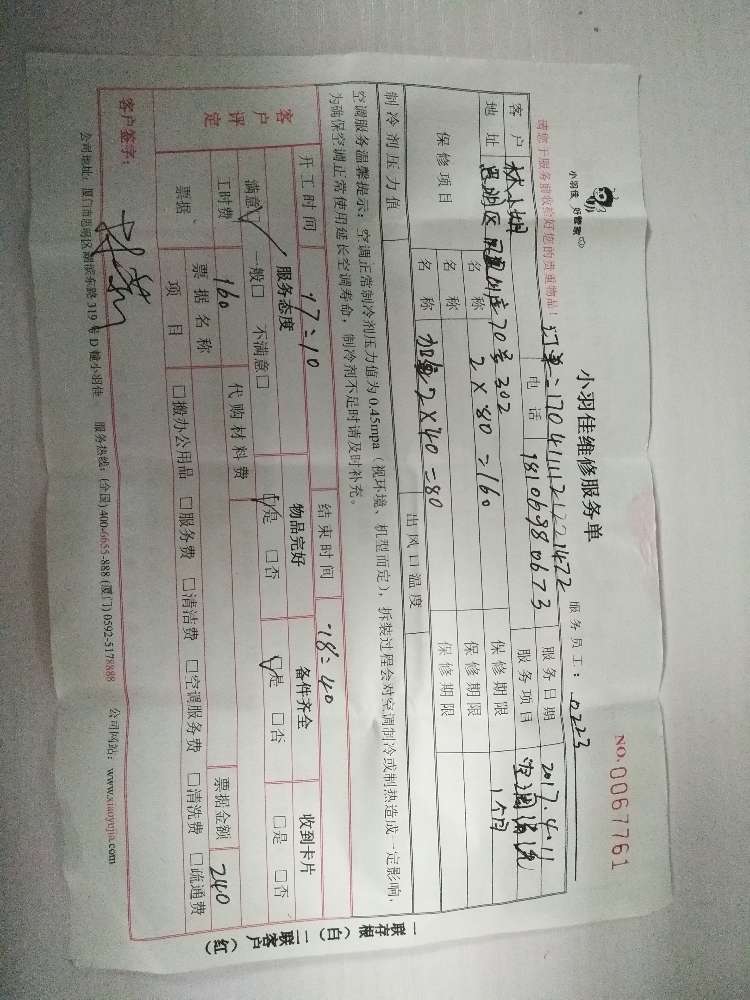 小羽佳 好管家
小羽佳维修服务单
NO.0067761
请您于服务前收检好您的贵重物品！
订单：170411121221472
服务员工：0223
客户 林小姐 电话 18106980673 服务日期 2017.4.11
地址 思明区 70号302 服务项目 空调清洗
保修项目 名称 2×80=160 保修期限 1个月
名称 保修期限
名称 加氟2×40=80 保修期限
制冷剂压力值 出风口温度
空调服务温馨提示：空调正常制冷剂压力值为0.45mpa（视环境、机型而定），拆装过程会对空调制冷或制热造成一定影响，
为确保空调正常使用延长空调寿命，制冷剂不足时请及时补充。
开工时间 17:10 结束时间 18:40
客户评定 服务态度 物品完好 备件齐全 收到卡片
满意□ 一般□ 不满意□ □是 □否 □是 □否 □是 □否
工时费 160 代购材料费 票据金额 240
票据、票据名称
项目 □搬办公用品 □服务费 □清洁费 □空调服务费 □清洗费 □疏通费
客户签字：
公司地址：厦门市思明区湖滨东路319号D幢小羽佳 服务热线：(全国)400-6655-888 (厦门)0592-5178888 公司网站：www.xiaoyujia.com
一联存根（白） 二联客户（红）